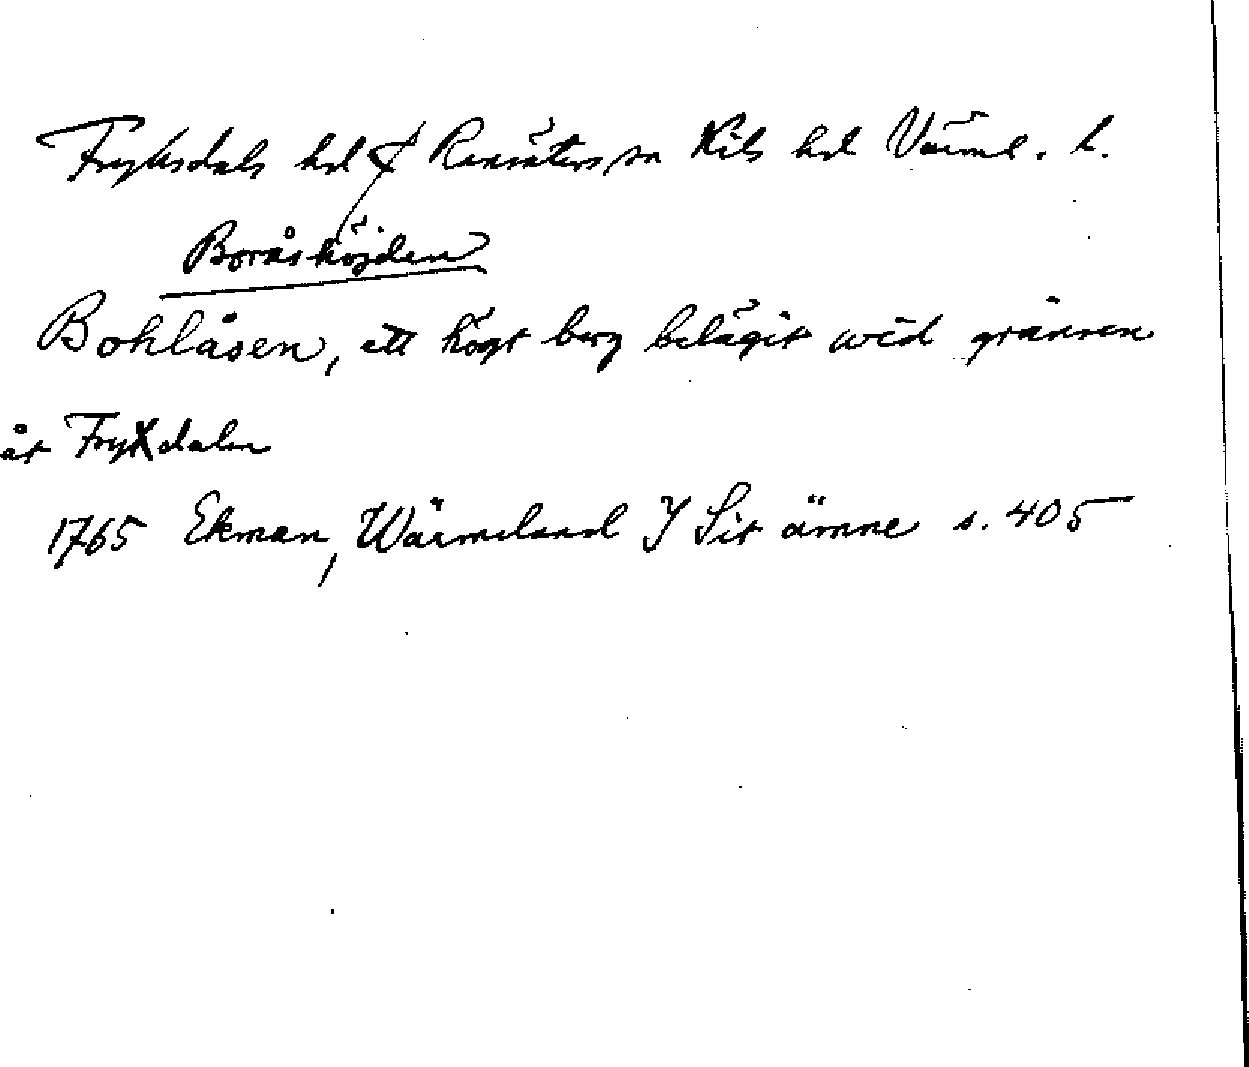 Fryksdals hd & Ransäters sn Kils hd Värml. l.
Boråshöjden
Bohlåsen, ett högt berg belägit wid gränsen
åt Fryxdalen
1765 Ekman, Wärmeland I Sit ämne s. 405